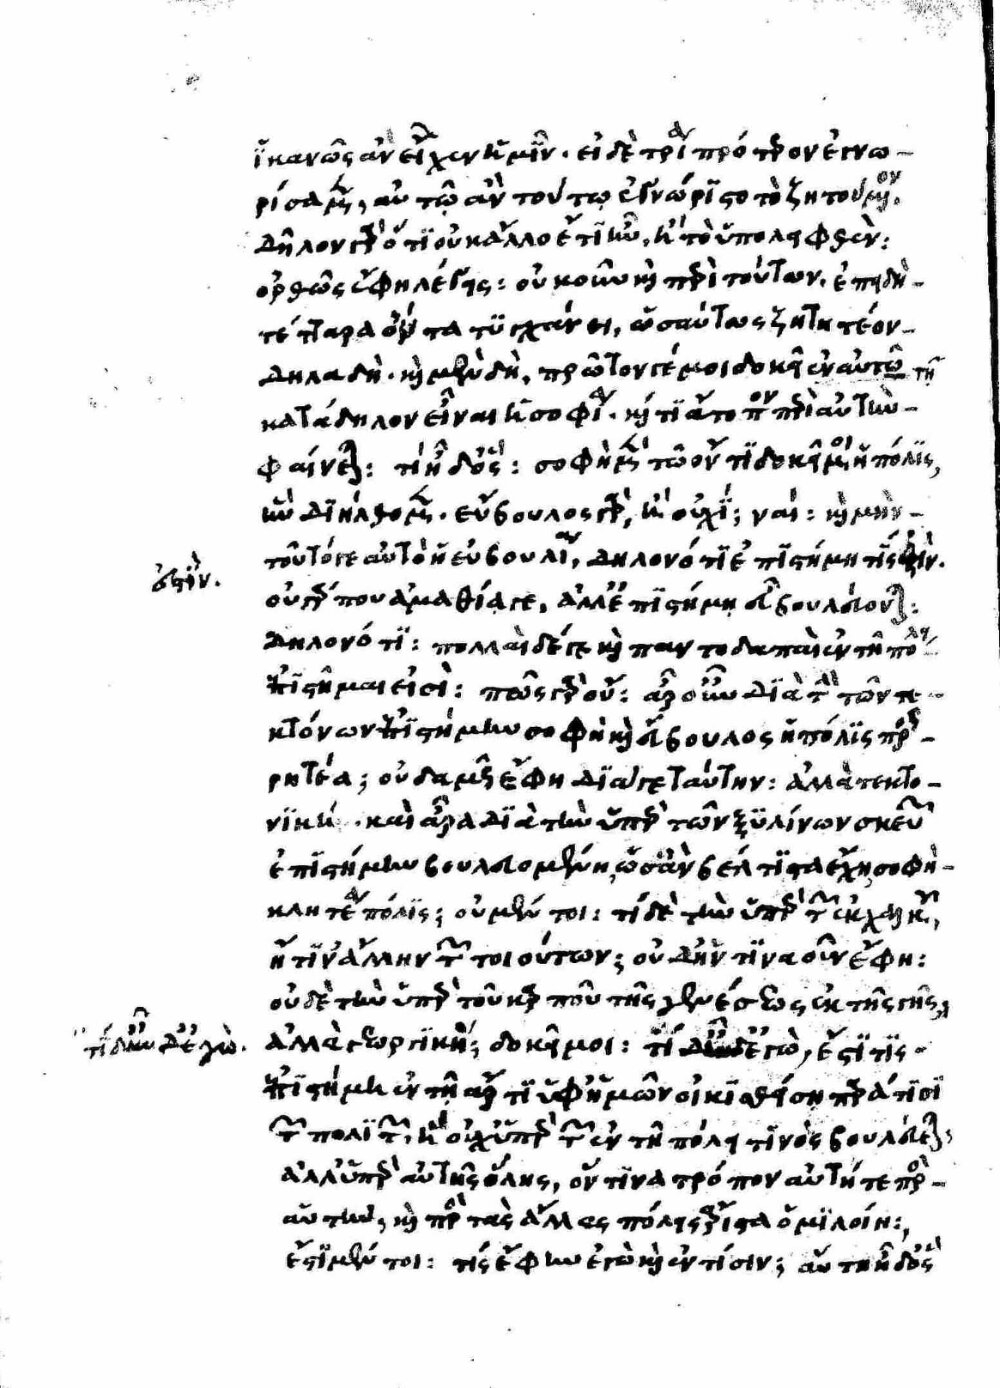 ἱκανῶς ἂν εἶχεν ἡμῖν. εἰ δὲ τρία πρότερον ἐγνω-
ρίσαμεν, αὐτῶ ἂν τούτω ἐγνώριστο τὸ ζητούμενον.
δῆλον γὰρ ὅτι οὐκ ἄλλο ἔτι ἦν, ἢ τὸ ὑπολειφθέν:
ὀρθῶς ἔφη λέγεις: οὐκοῦν καὶ περὶ τούτων, ἐπειδὴ-
τέτταρα ὄντα τυγχάνει, ὡσαύτως ζητητέον-
δηλαδὴ. καὶ μὲν δὴ, πρῶτον γέ μοι δοκεῖ ἐν αὐτῶ τῆ
κατάδηλον εἶναι ἡ σοφία. καί τι ἄτοπον περὶ αὐτὴν-
φαίνεται: τί ἦ δ' ὅς: σοφὴ μὲν τῶ ὄντι δοκεῖ μοι ἡ πόλις,
ἣν διήλθομεν. εὔβουλος γὰρ, ἢ οὐχί; ναί: καὶ μὴν-
τοῦτό γε αὐτὸ ἡ εὐβουλία, δηλονότι ἐπιστήμη τίς ἐστιν.
ἐστίν.
οὐ γάρ που ἀμαθία γε, ἀλλ' ἐπιστήμη εὖ βουλεύονται:
δηλονότι: πολλαὶ δέ γε καὶ παντοδαπαὶ ἐν τῆ πόλει
ἐπιστῆμαι εἰσὶ: πῶς γὰρ οὔ: ἆρ' οὖν διὰ τὴν τῶν τε-
κτόνων ἐπιστήμην σοφὴ καὶ εὔβουλος ἡ πόλις προσ-
ρητέα; οὐδαμῶς ἔφη διά γε ταύτην: ἀλλὰ τεκτο-
νική. καὶ ἆρα διὰ τὴν ὑπὲρ τῶν ξυλίνων σκευῶν
ἐπιστήμην βουλευομένη, ὡς ἂν βέλτιστα ἔχη, σοφὴ-
κλητέα πόλις; οὐ μέν τοι: τί δὲ τὴν ὑπὲρ τῶν ἐκ χαλκοῦ,
ἤ τιν' ἄλλην τῶν τοιούτων; οὐδ' ἥν τινα οὖν ἔφη:
οὐδὲ τὴν ὑπὲρ τοῦ καρποῦ τῆς γενέσεως ἐκ τῆς γῆς,
ἀλλὰ γεωργική; δοκεῖ μοι: τί δ' ἦν δ' ἐγὼ, ἔστί τις-
τί δ' ἦν δ' ἐγὼ.
ἐπιστήμη ἐν τῆ ἄρτι ὑφ' ἡμῶν οἰκισθείση παρά τισι
τῶν πολιτῶν, ἣ οὐχ ὑπὲρ τῶν ἐν τῆ πόλει τινὸς βουλεύεται,
ἀλλ' ὑπὲρ αὐτῆς ὅλης, ὅν τινα τρόπον αὐτή τε πρὸς-
αὑτὴν, καὶ πρὸς τὰς ἄλλας πόλεις ἄριστα ὁμιλοίη:,
ἔστι μέν τοι: τίς ἔφην ἐγὼ καὶ ἐν τίσιν; αὕτη ἦ δ' ὅς